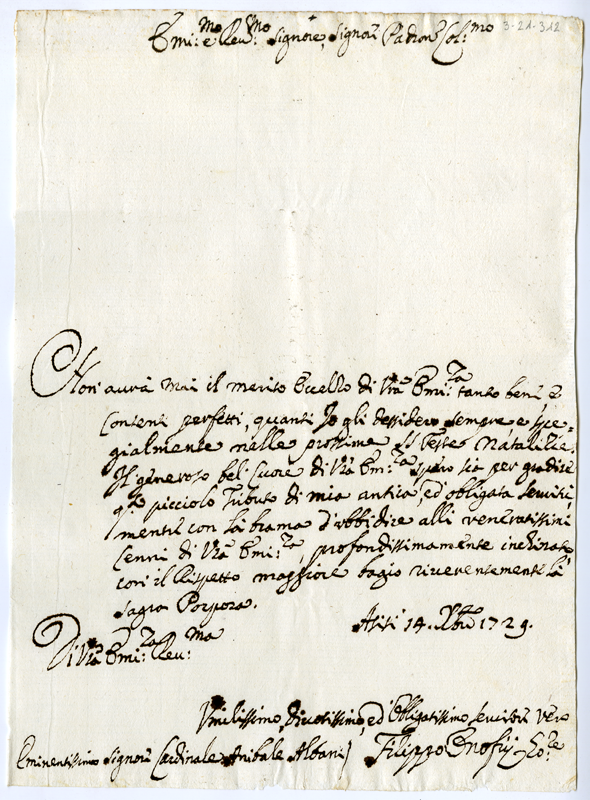 3-21-312
Emi:mo e Reu:mo Signore, Signor Padron Col:mo
Non aurà mai il merito Eccelso di Vra Emi:za tanto beni e
Contenti perfetti, quanti Io gli dessidero sempre e spe=
zialmente nelle prossime Ss. Feste Natalizie.
Il generoso bel Cuore di Vra Em:za spero sia per gradire
qto picciolo Tributo di mia antica, ed obligata Servitù,
mentre con la brama d'vbbidire alli veneratissimi
Cenni di Vra Emi:za, profondissimamente inchinato,
con il Rispetto maggiore bagio riuerentemente la
sagra Porpora.
Asisi 14. Xbre 1729.
Di Vra Emi:za Reu:ma
Vmilissimo, Diuotissimo, ed Obligatissimo Seruitore vero
Eminentissimo Signor Cardinale Anibale Albani Filippo Onofrij